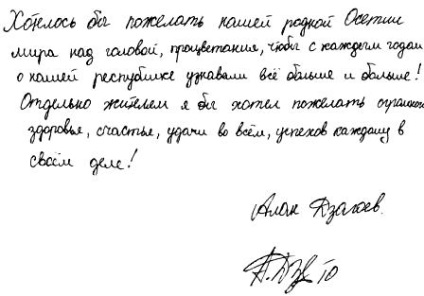 Хотелось бы пожелать нашей родной Осетии
мира над головой, процветания, чтобы с каждым годом
о нашей республике узнавали всё больше и больше!
Отдельно жителям я бы хотел пожелать огромного
здоровья, счастья, удачи во всём, успехов каждому в
своём деле!
Алан Дзагоев.
10